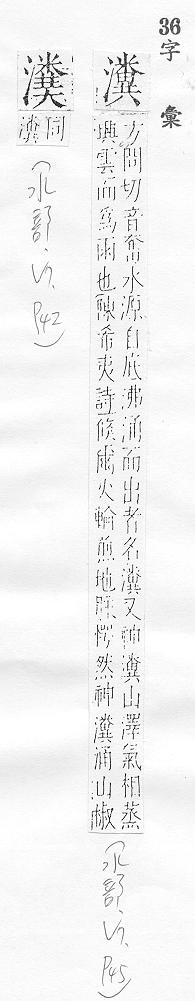 36
字彙
瀵
方問切音奮水源自底沸涌而出者名瀵又神瀵山澤氣相蒸
興雲而為雨也陳希夷詩倏爾火輪煎地脉愕然神瀵涌山椒
(水部.17. P45)
同瀵
(水部.17. P42)